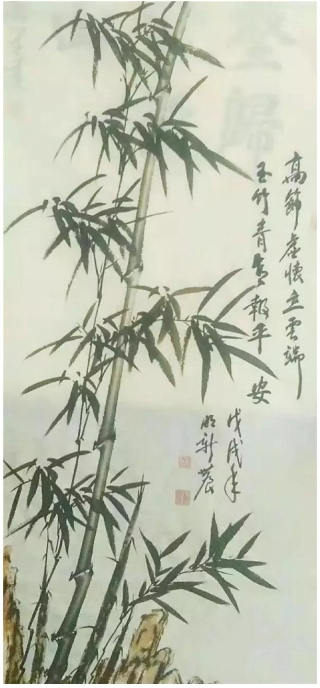 高節虛懷立雲端
玉竹青報平安
戊戌年
明新農